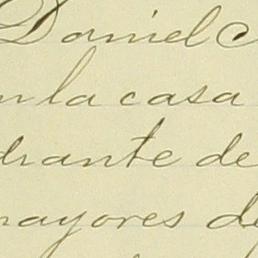 Daniel
n la casa
drante de
mayores de